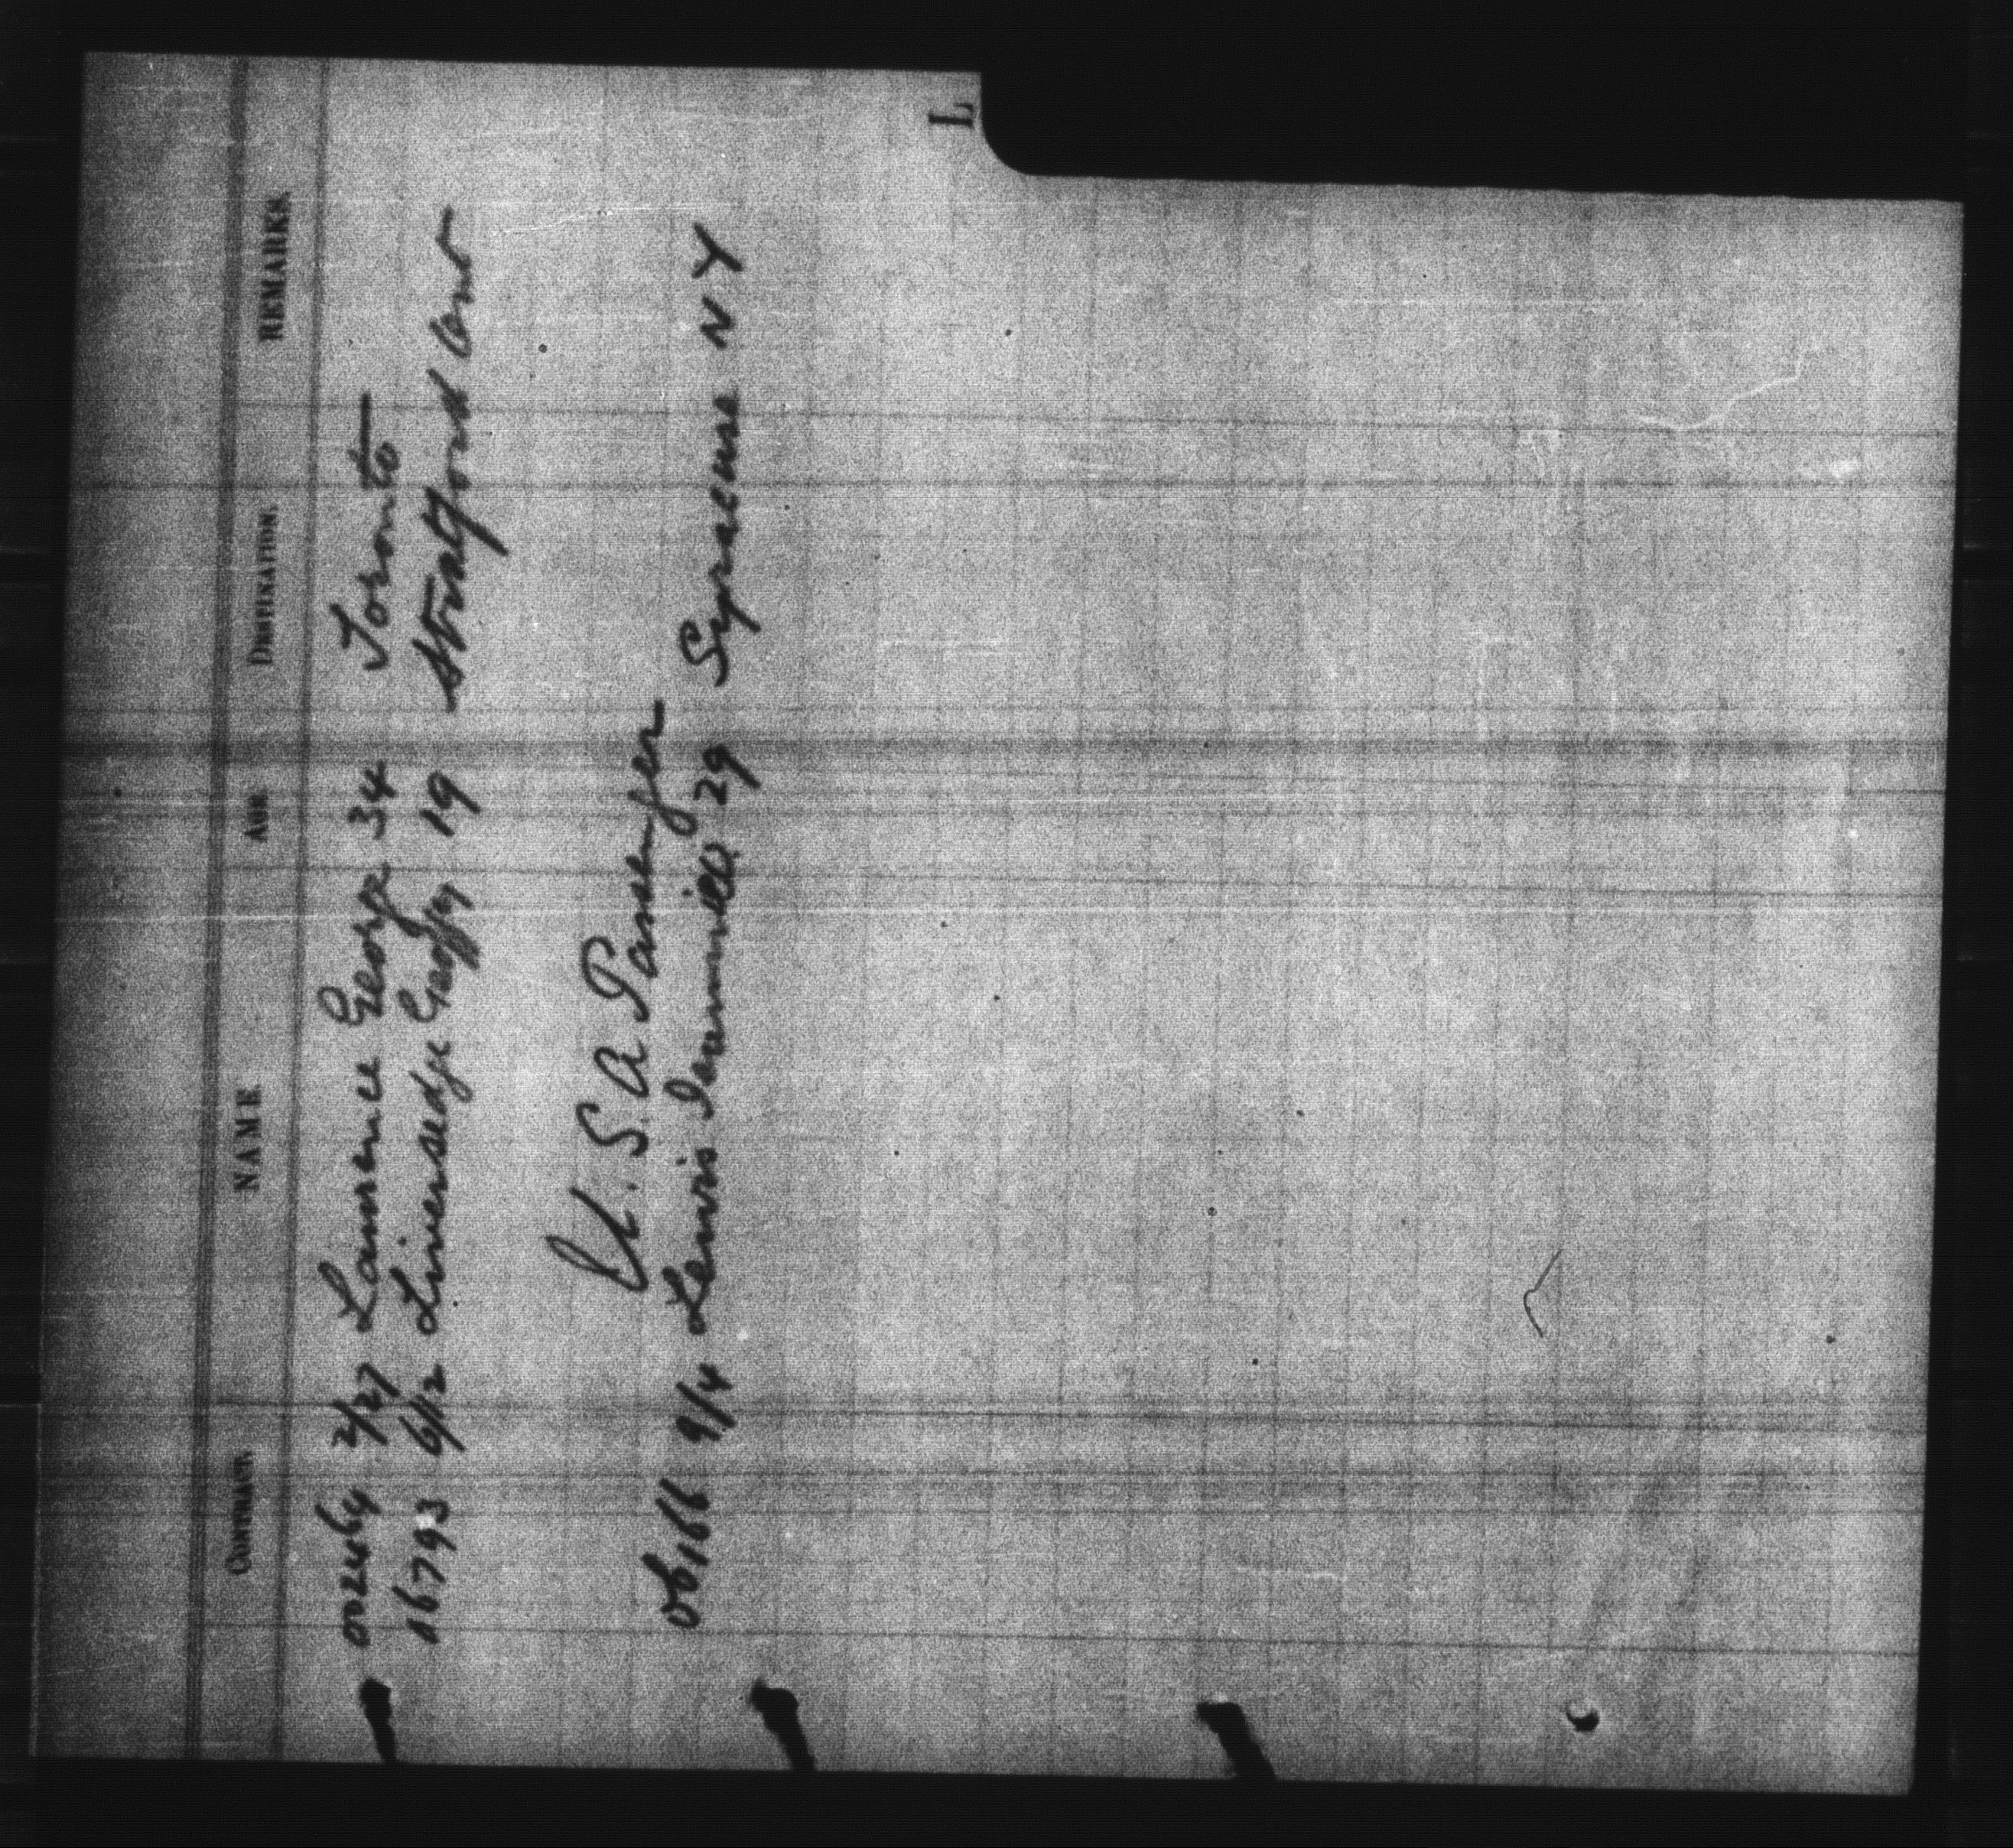 L
CONTRACT. NAME AGE DESTINATION. REMARKS.
002464 2/27 Lawrence George 34 Toronto
16793 6/12 Liversedge Geoffry 19 Stratford Cont
U.S.A Passenger
06166 9/4 Lewis 29 Syracuse NY